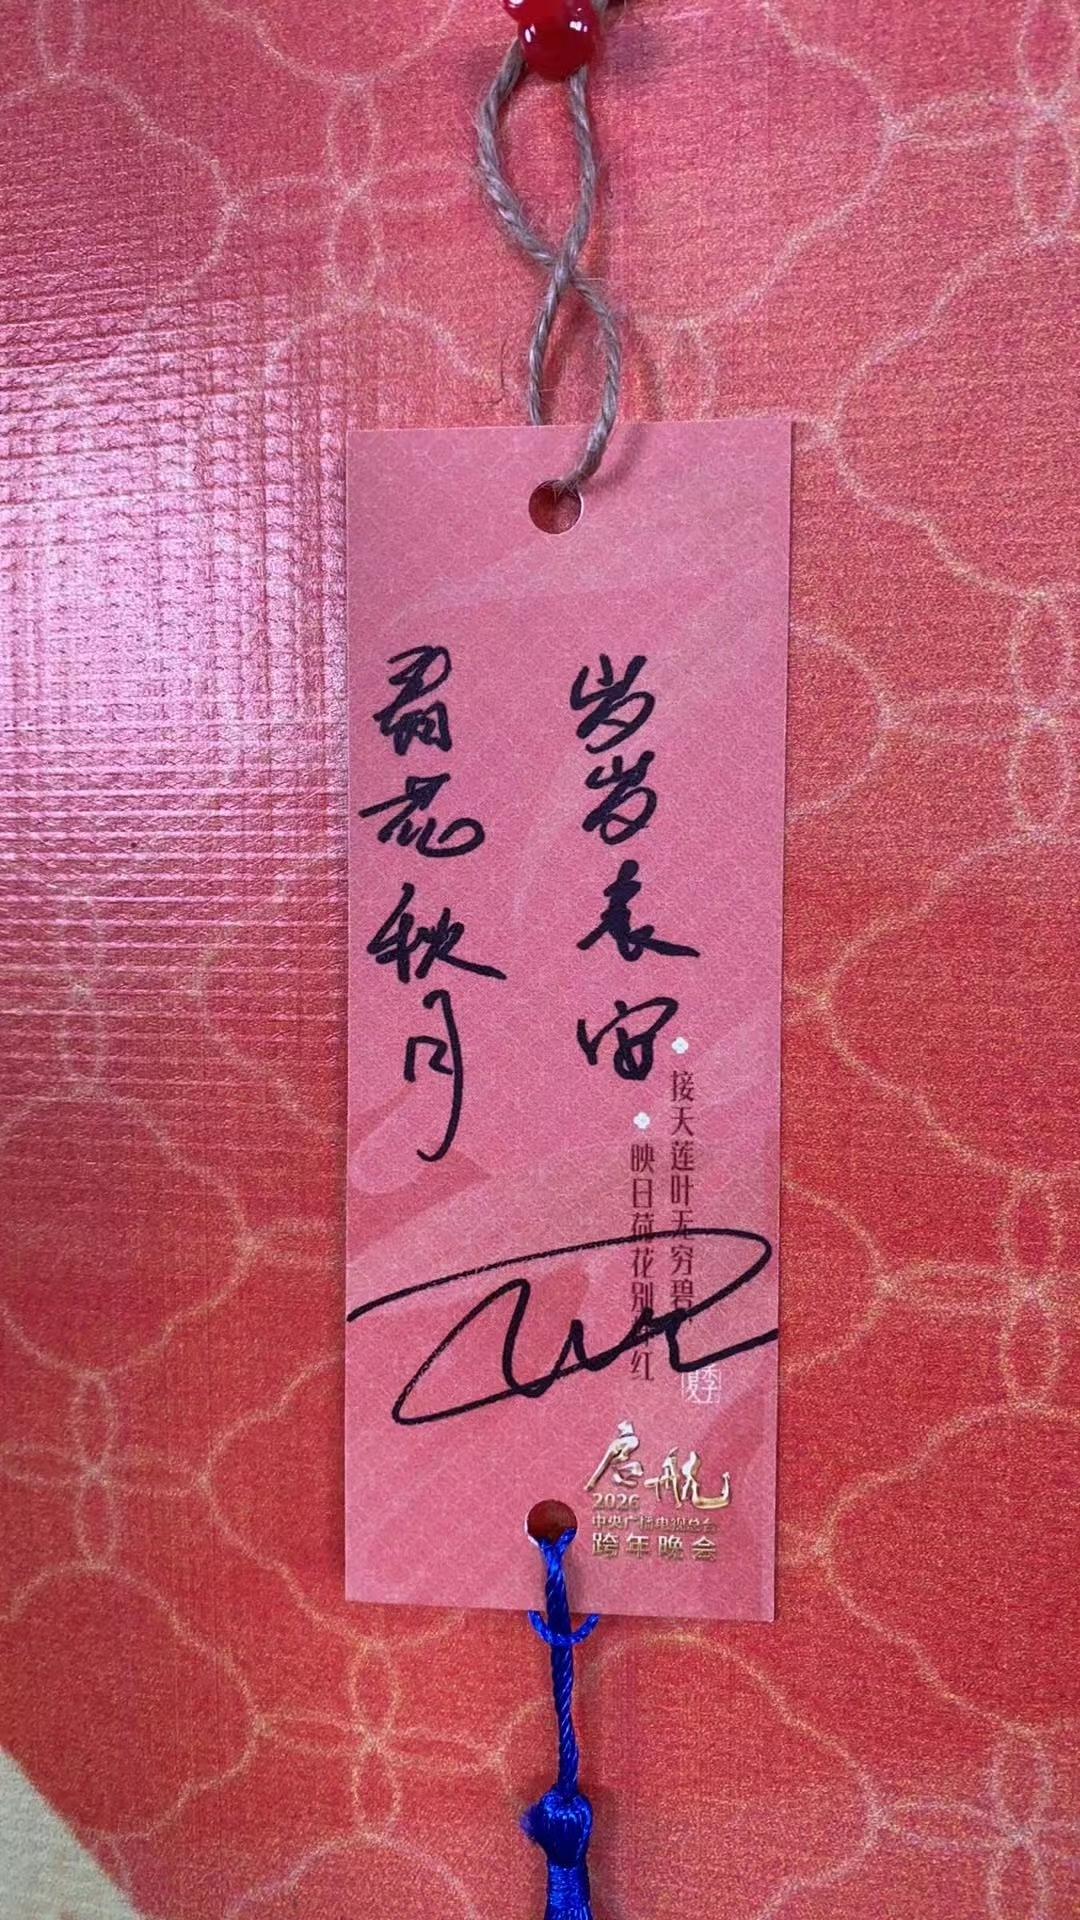 岁岁
花秋月
接天莲叶无穷碧
映日荷花别样红
夏季
启航
2026
中央广播电视总台
跨年晚会